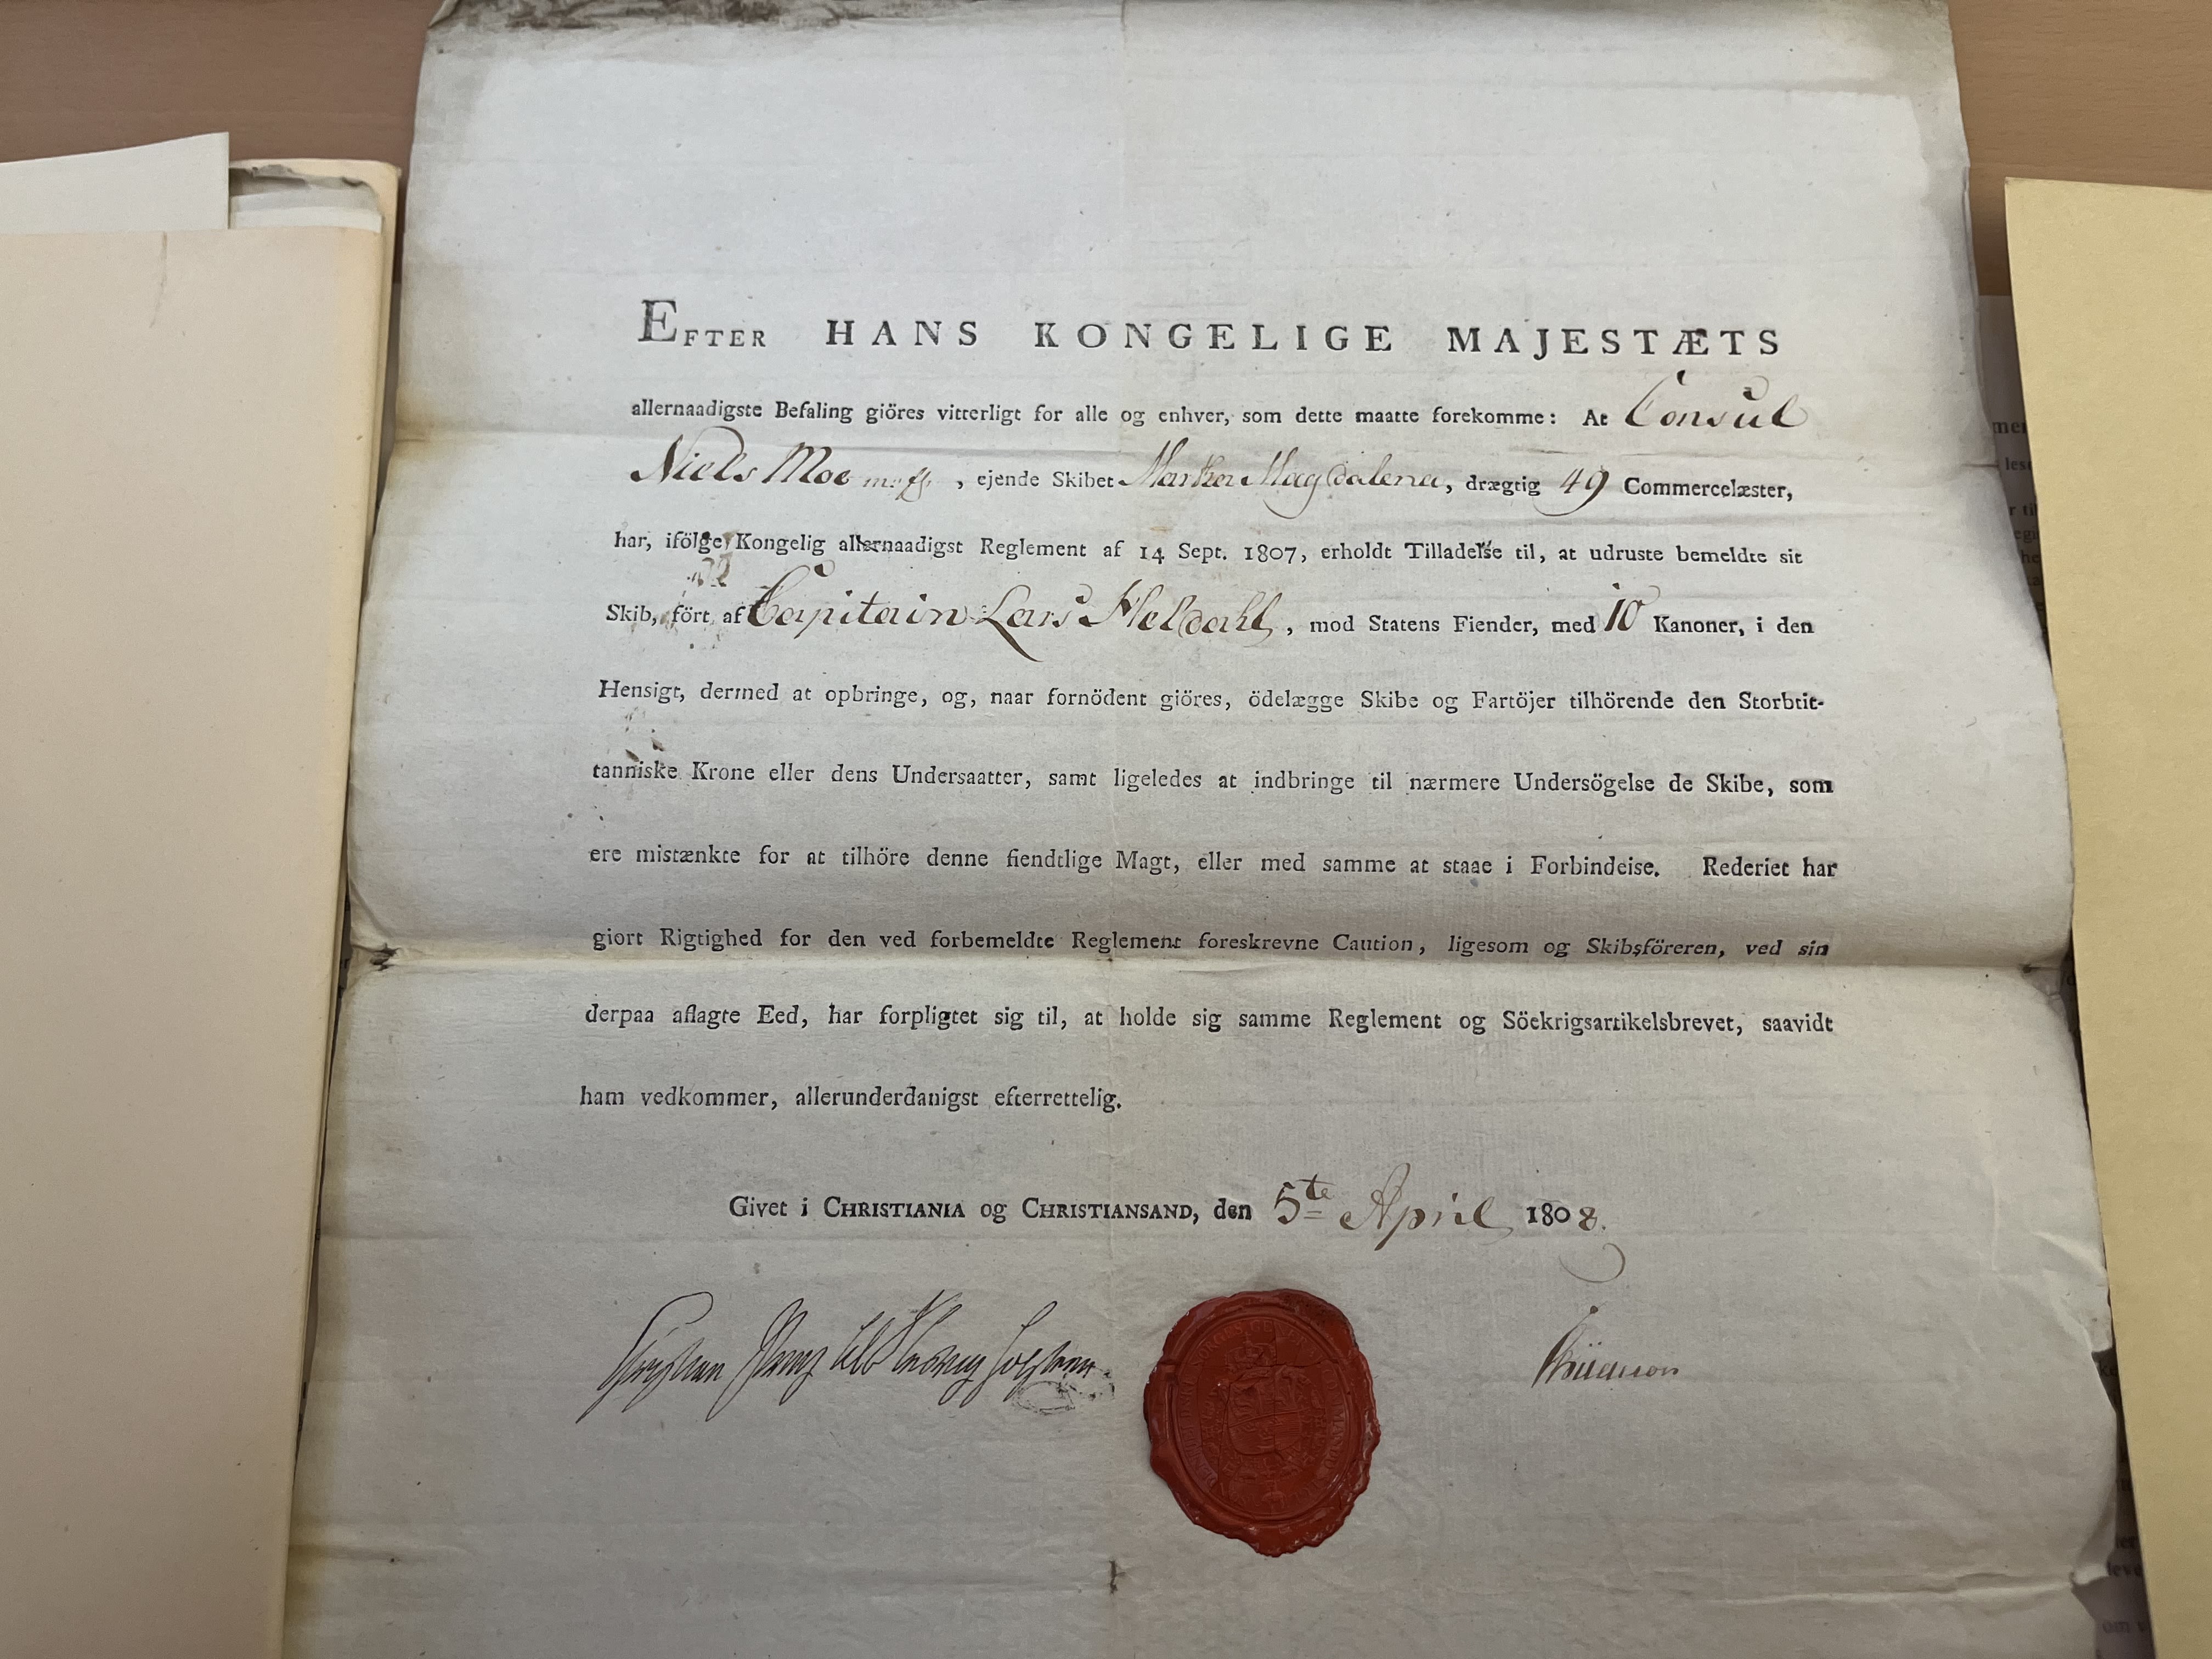 EFTER HANS KONGELIGE MAJESTÆTS
allernaadigste Befaling giöres vitterligt for alle og enhver, som dette maatte forekomme: At Consul
Niels Moe , ejende Skibet Martha Magdalena, drægtig 49 Commercelæster,
har, ifölge Kongelig allernaadigst Reglement af 14 Sept. 1807, erholdt Tilladelse til, at udruste bemeldte sit
Skib, fört af Capitain Lars Heldahl, mod Statens Fiender, med 10 Kanoner, i den
Hensigt, dermed at opbringe, og, naar fornödent giöres, ödelægge Skibe og Fartöjer tilhörende den Storbtit-
tanniske Krone eller dens Undersaatter, samt ligeledes at indbringe til nærmere Undersögelse de Skibe, som
ere mistænkte for at tilhöre denne fiendtlige Magt, eller med samme at staae i Forbindeise. Rederiet har
giort Rigtighed for den ved forbemeldte Reglement foreskrevne Caution, ligesom og Skibsföreren, ved sin
derpaa aflagte Eed, har forpligtet sig til, at holde sig samme Reglement og Söekrigsartikelsbrevet, saavidt
ham vedkommer, allerunderdanigst efterrettelig.
Givet i CHRISTIANIA og CHRISTIANSAND, den 5te April 1808.